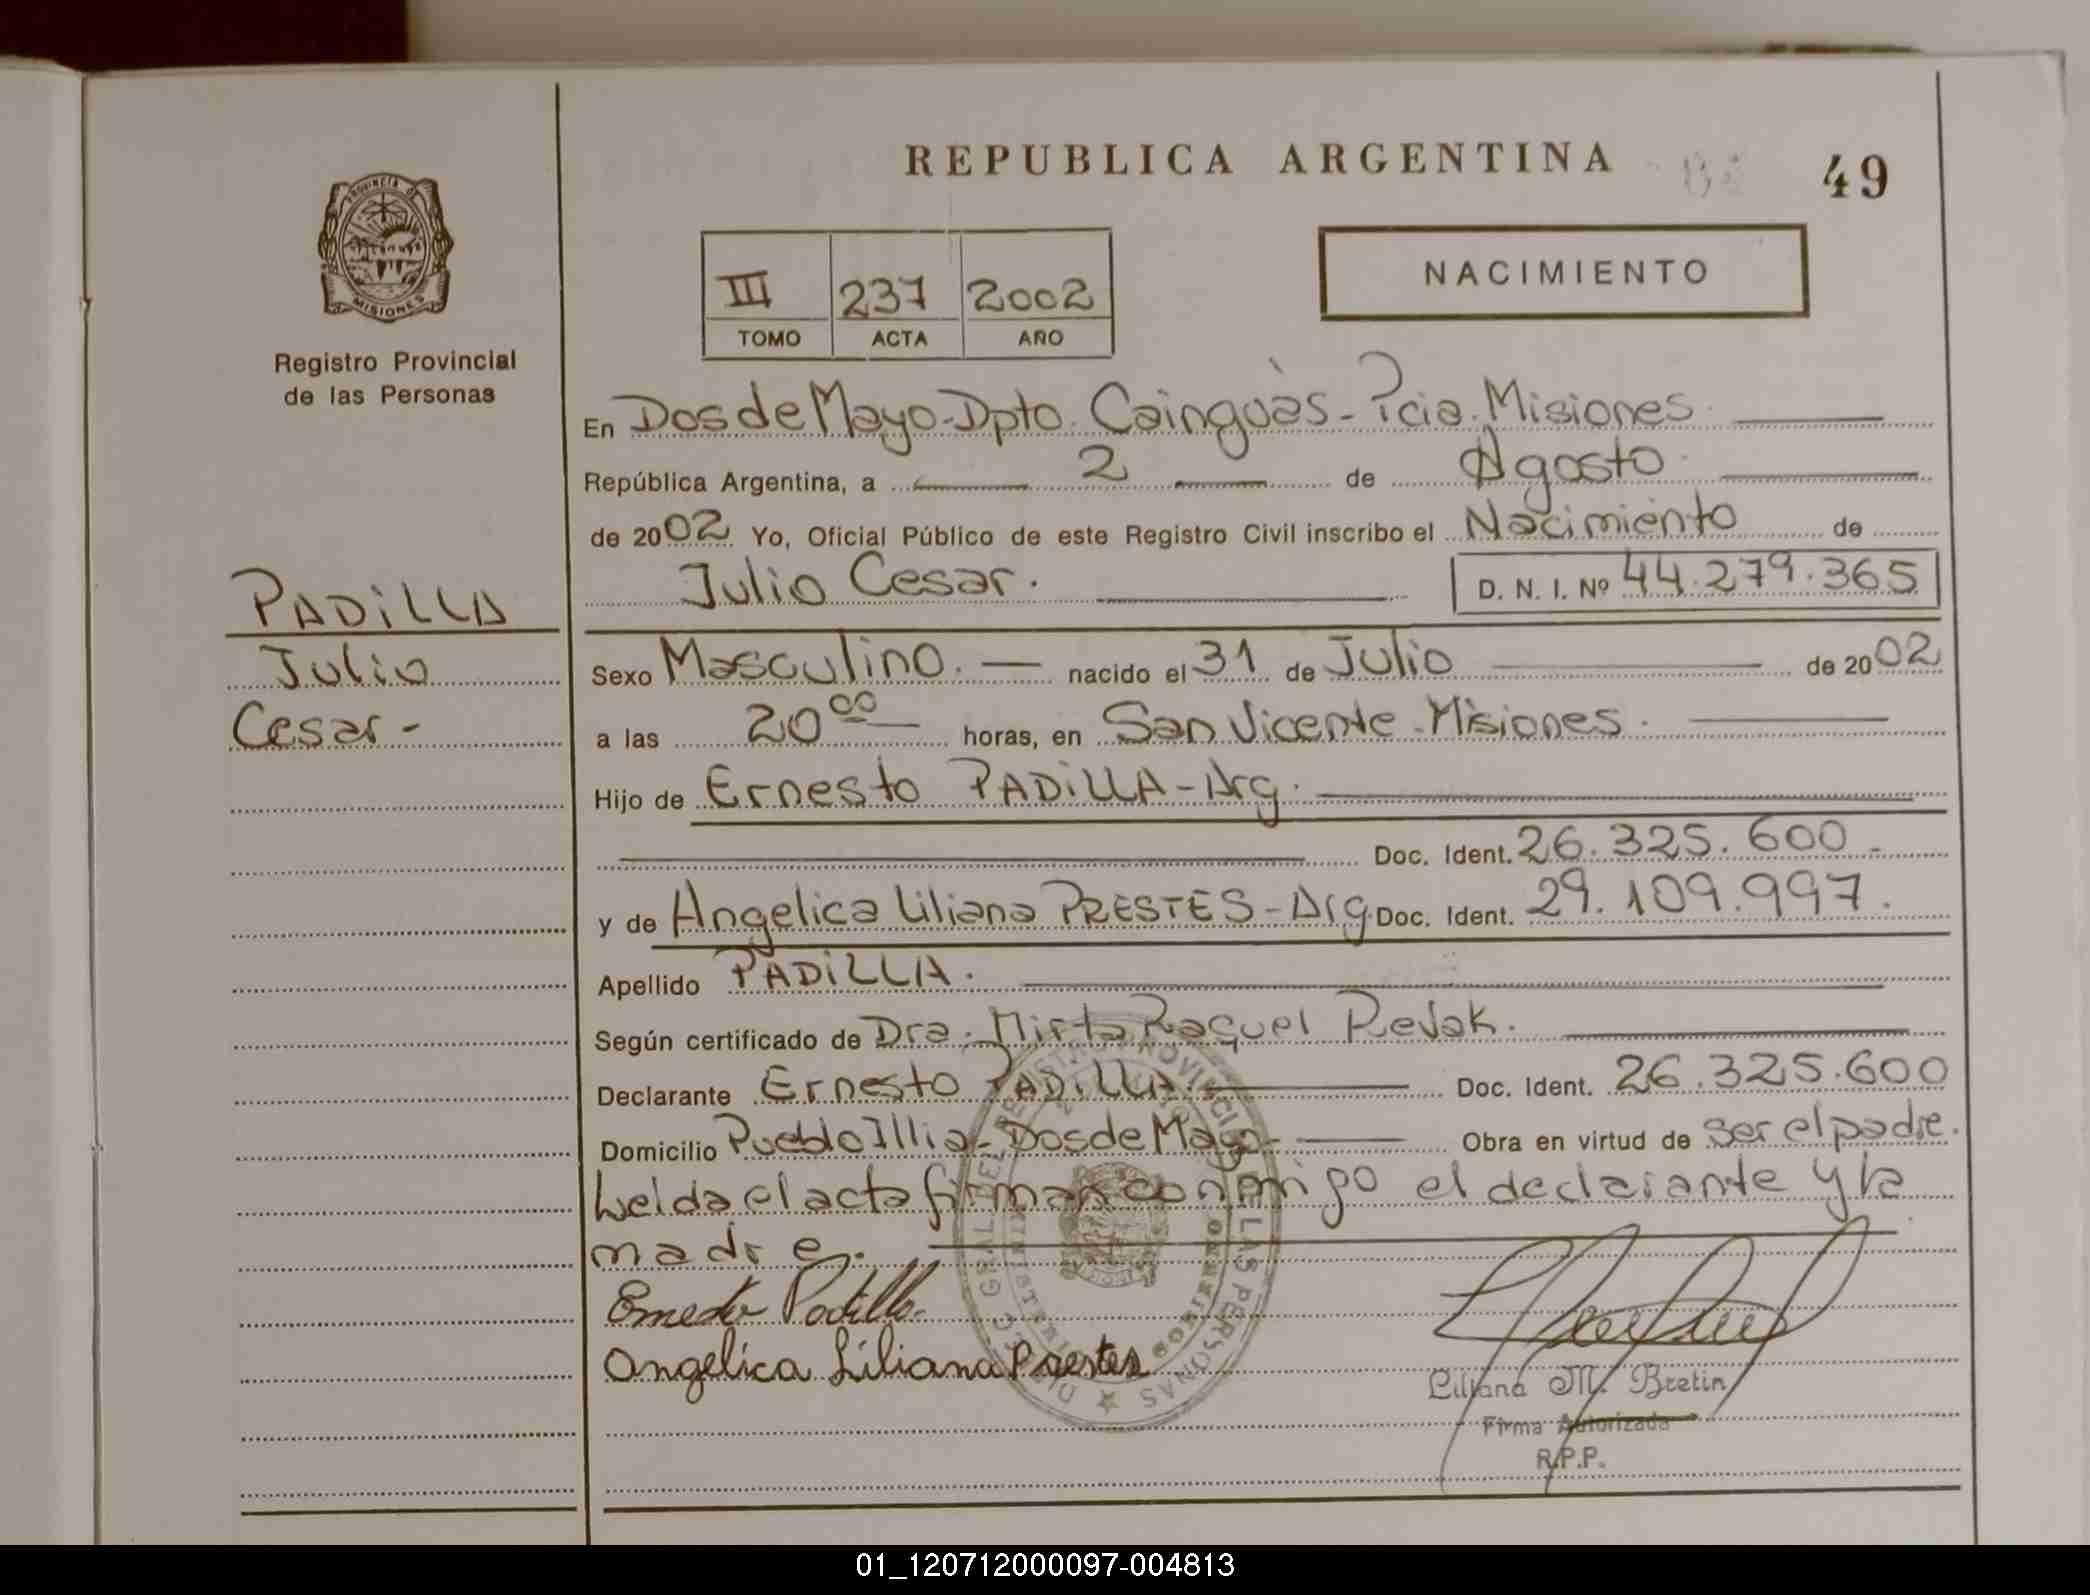 REPUBLICA ARGENTINA
49
PROVINCIA DE MISIONES
Registro Provincial
de las Personas
III 237 2002
TOMO ACTA AÑO
NACIMIENTO
En Dos de Mayo - Dpto. Cainguàs - Pcia. Misiones
República Argentina, a 2 de Agosto
de 2002 Yo, Oficial Público de este Registro Civil inscribo el Nacimiento de
Julio Cesar. D. N. I. Nº 44.279.365
PADiLLA
Julio
Cesar -
Sexo Masculino. nacido el 31 de Julio de 2002
a las 20 00 horas, en San Vicente - Misiones.
Hijo de Ernesto PADiLLA - Arg.
Doc. Ident. 26.325.600 -
y de Angelica Liliana PRESTES - Arg. Doc. Ident. 29.109.997.
Apellido PADiLLA.
Según certificado de Dra. Mirta Raquel
Declarante Ernesto PADiLLA. Doc. Ident. 26.325.600
Domicilio Pueblo Illia - Dos de Mayo - Obra en virtud de ser el padre.
Leida el acta firman conmigo el declarante y la
madre.
Ernesto Padilla
Angelica Liliana Prestes
Liliana M. Bretin
Firma Autorizada
R.P.P.
01_120712000097-004813